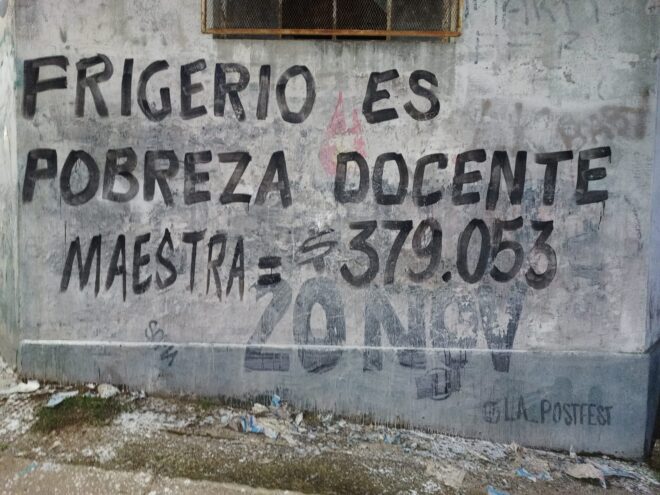 FRIGERIO ES
POBREZA DOCENTE
MAESTRA = $379.053
20 NOV
SOM
@LA_POSTFEST